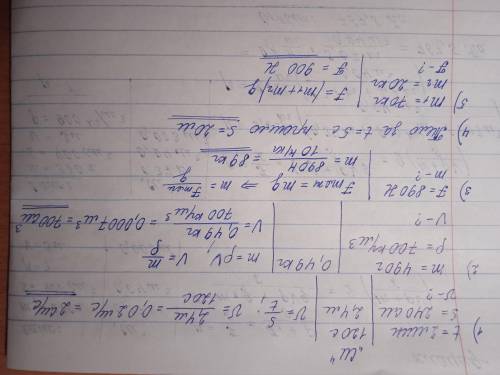 "СИ"
1) t = 2 мин | 120 с | υ = s/t ; υ = 2,4 м / 120 с = 0,02 м/с = 2 см/с
s = 240 см | 2,4 м
υ - ?
2) m = 490 г | 0,49 кг | m = ρV ; V = m/ρ
ρ = 700 кг/м³ | V = 0,49 кг / 700 кг/м³ = 0,0007 м³ = 700 см³
V - ?
3) F = 890 Н | Fтяж = mg ⇒ m = Fтяж/g
m - ? | m = 890 Н / 10 Н/кг = 89 кг
4) Тело за t = 5 с прошло s = 20 м
5) m₁ = 70 кг | F = (m₁ + m₂) g
m₂ = 20 кг | F = 900 Н
F - ?